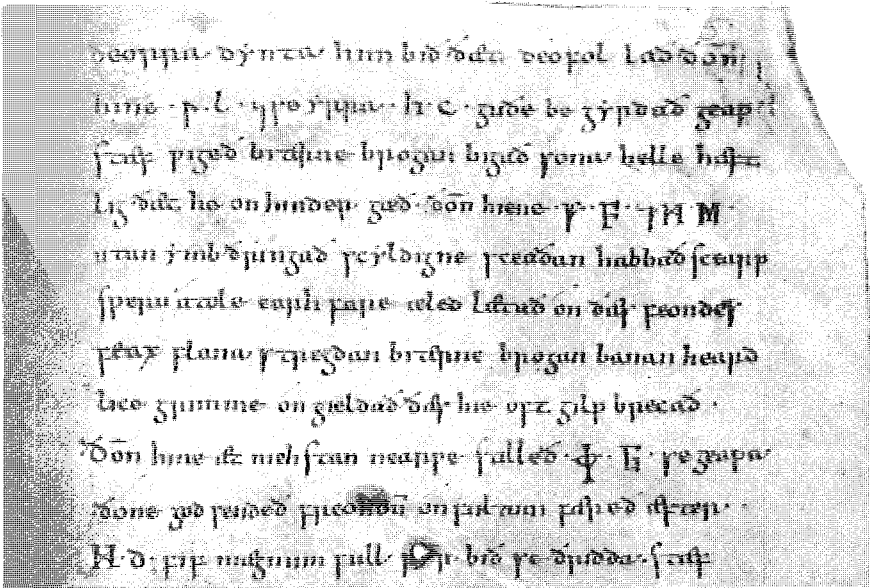 deorra dynta him bið ðæt deofol lað ðon̄
hine · ᚹ · L · ⁊ se yrra · ᚻ · C · guðe be gyrdað geap
stæf wigeð biterne brogan bigað sona helle hæft
lig ðæt he on hinder gæð · ðon̄ hiene · ᚠ · F · ⁊ ᛗ M ·
utan ymb ðringað scyldigne sceaðan habbað scearp
speru atole earh fare æled lætað on ðæs feondes
feax flana stregdan biterne brogan banan heard
lice grimme on gieldað ðæs hie oft gilp brecað ·
Ðon̄ hine æt niehstan nearwe stilleð · ᛄ · G · se geapa
ðone god sendeð freondū on fultum færeð æfter ·
ᛞ · D · fif mægnum full · fyr bið se ðridda stæf